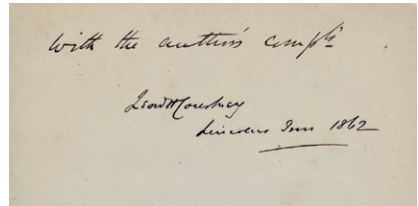 with the author's compts
Leond H Courtney
Lincolns Inn 1862